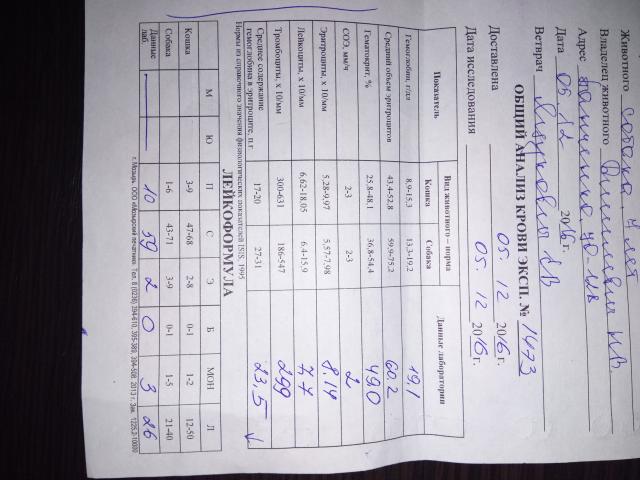 Животного собака 4 лет
Владелец животного
Адрес
Дата 05.12 2016 г.
Ветврач
ОБЩИЙ АНАЛИЗ КРОВИ ЭКСП. № 1473
Доставлена 05. 12 2016 г.
Дата исследования 05. 12 2016 г.
Показатель Вид животного – норма Данные лаборатории
Кошка Собака
Гемоглобин, г/дл 8,9-15,3 13,3-19,2 19,1
Средний объем эритроцитов 43,4-52,8 59,9-75,2 60.2
Гематокрит, % 25,8-48,1 36,8-54,4 49.0
СОЭ, мм/ч 2-3 2-3 2
Эритроциты, х 10/мм 5,28-9,97 5,57-7,98 8.14
Лейкоциты, х 10/мм 6,62-18.05 6,4-15,9 7,7
Тромбоциты, х 10/мм 300-631 186-547 299
Среднее содержание гемоглобина в эритроците, п.г 17-20 27-31 23,5 ↓
Нормы из справочного значения физиологических показателей ISIS, 1995
ЛЕЙКОФОРМУЛА
М Ю П С Э Б МОН Л
Кошка 3-9 47-68 2-8 0-1 1-2 12-50
Собака 1-6 43-71 3-9 0-1 1-5 21-40
Данные лаб. — — 10 59 2 0 3 26
г. Мозырь, ООО «Мозырский печатник». Тел. 8 (0236) 2013 г. Зак.